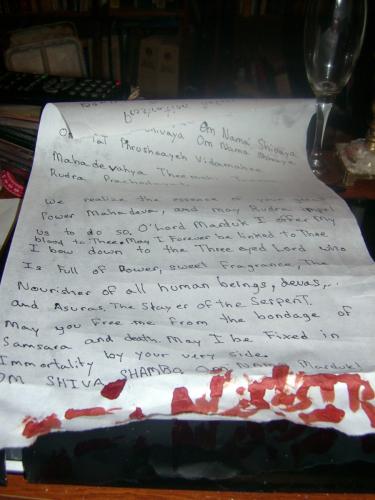 Om Nama Shivaya
Om Nama Shivaya
Om Tat
Mahadevahya Theemahi
Rudra
We realize the essence of your
Power Mahadeva, and May Rudra
us to do so. O'Lord Marduk I offer My
blood to Thee. May I Forever be linked to Thee
I bow down to the Three eyed Lord who
Is Full of Power, sweet Fragrance, The
Nourisher of all human beings, devas,
and Asuras, The Slayer of the Serpent.
May you Free me From the bondage of
Samsara and death. May I be Fixed in
Immortality by your very side.
OM SHIVA SHAMBO OM NAMA Marduk!